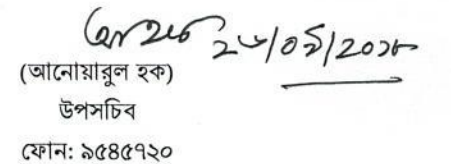 ২৬/০৯/২০১৮
(আনোয়ারুল হক)
উপসচিব
ফোন: ৯৫৪৫৭২০